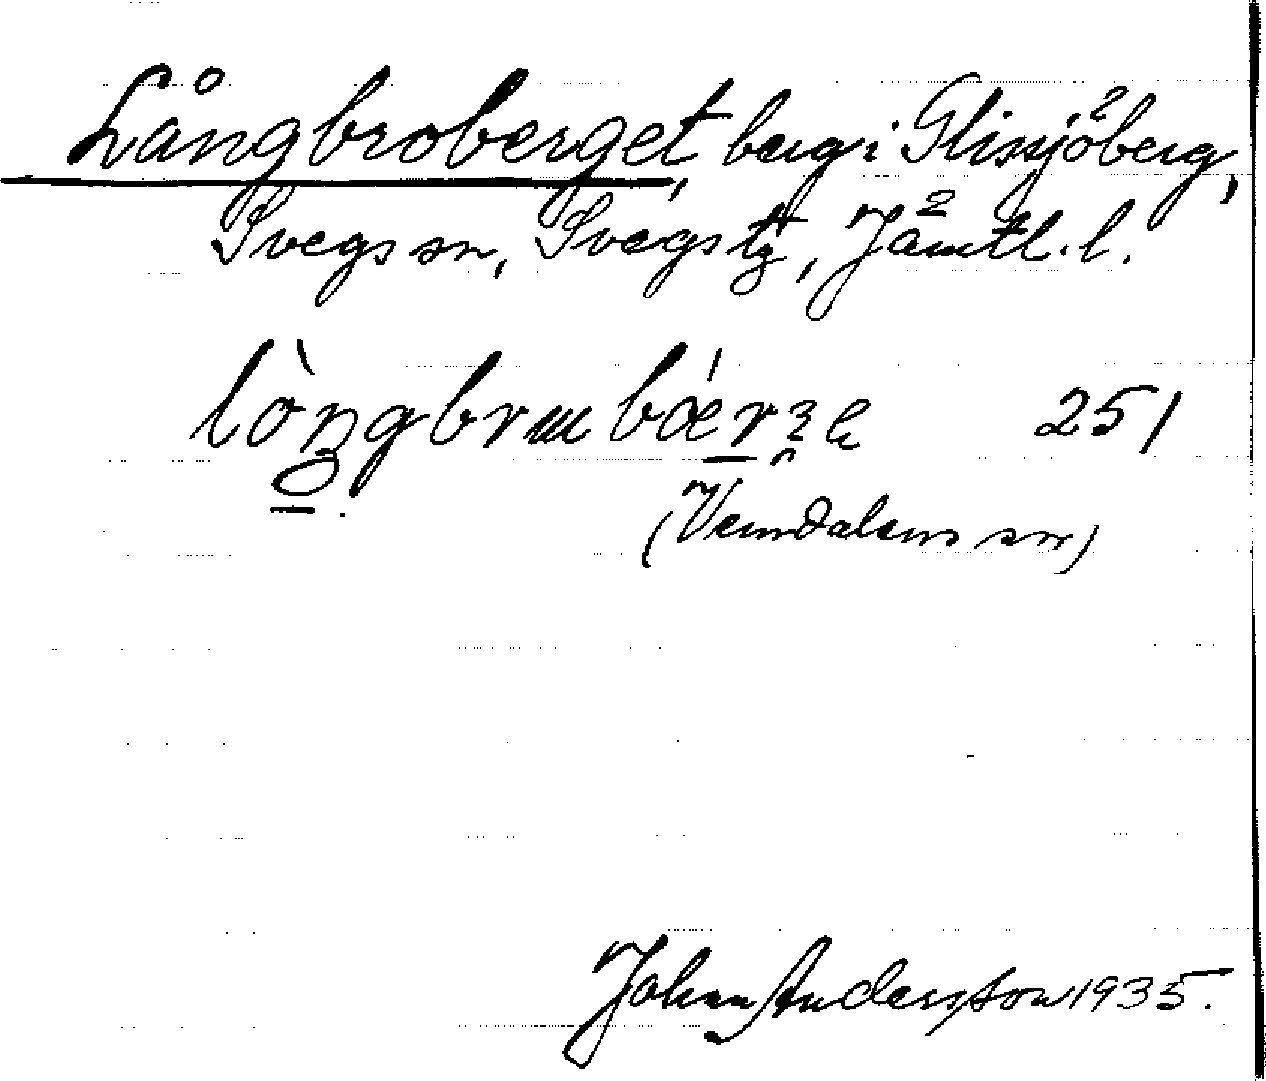 Långbroberget, berg i Glissjöberg,
Svegs sn, Svegs tg, Jämtl. l.
251
(Vemdalens sn)
Johan Andersson 1935.